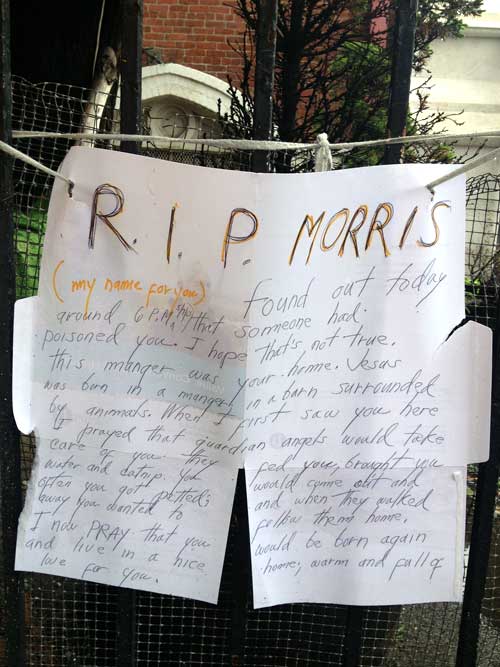 R.I.P. MORRIS
(my name for you) Found out today
around 6 P.M. that someone had
poisoned you. I hope that's not true.
this manger was your home. Jesus
was born in a manger, in a barn surrounded
by animals. When I first saw you here
I prayed that guardian angels would take
care of you. They fed you, brought you
water and catnip. You would come out and
often you got petted; and when they walked
away you wanted to follow them home.
I now PRAY that you would be born again
and live in a nice home; warm and full of
love for you.